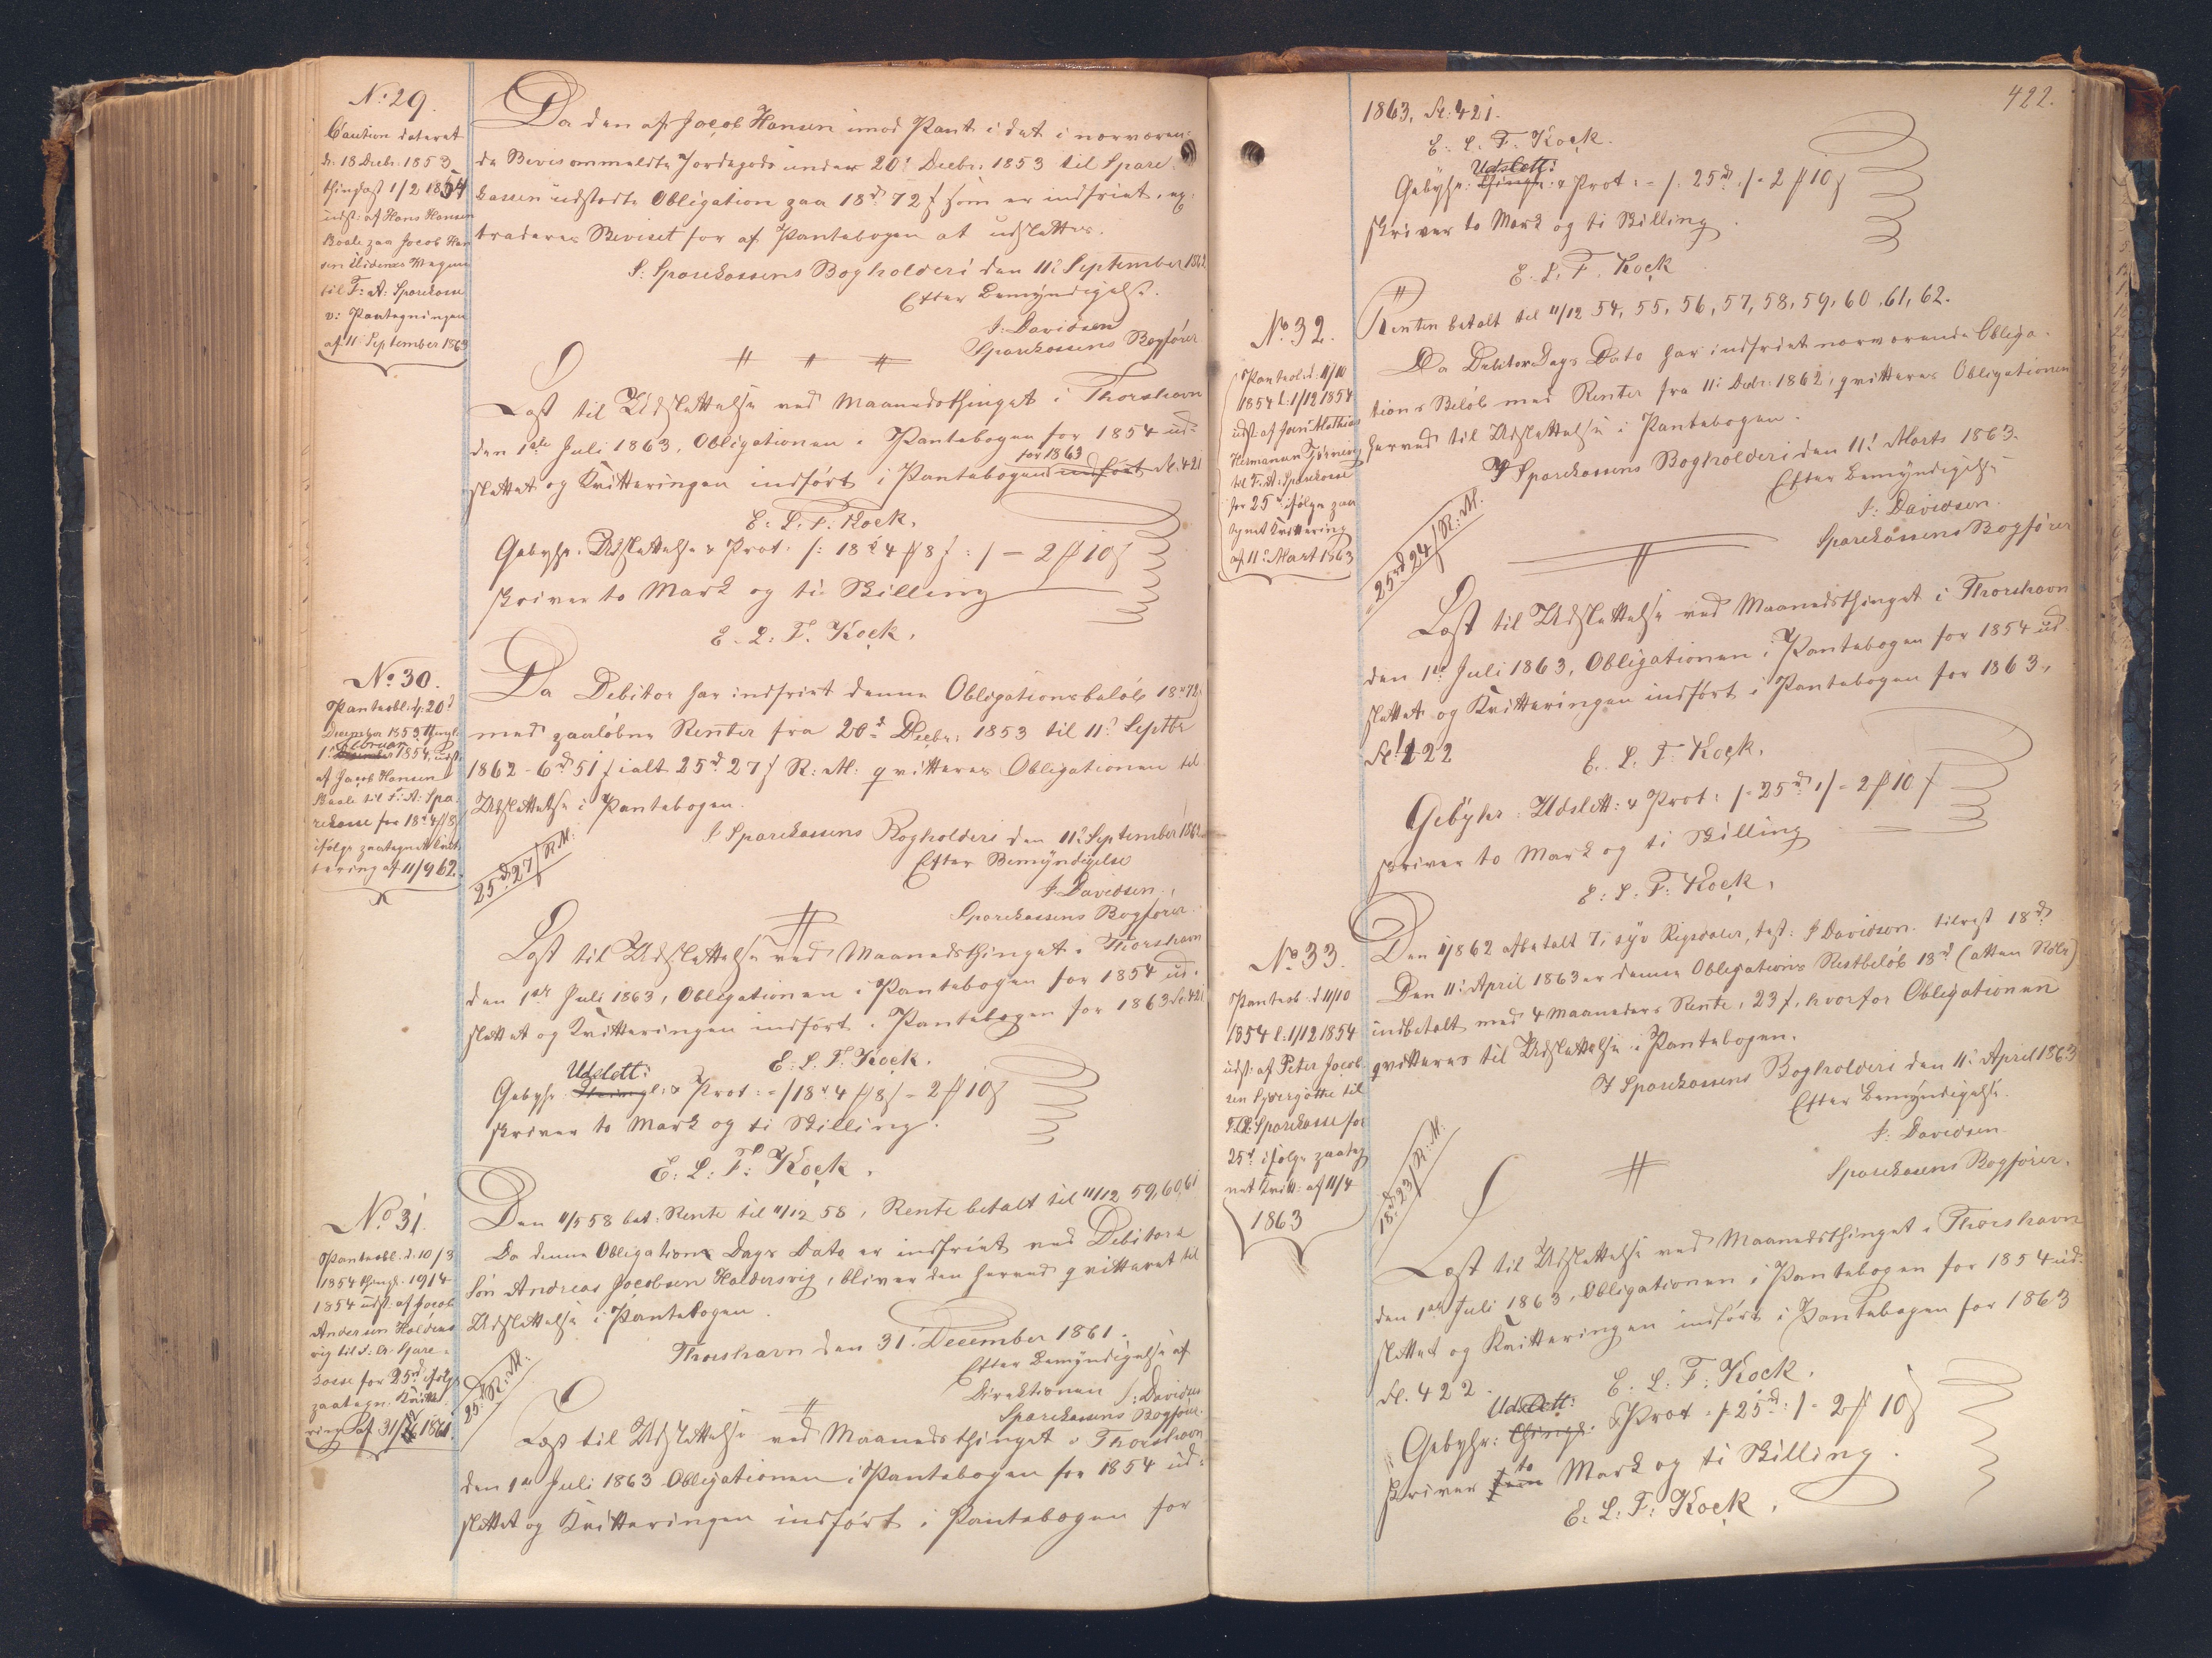 No 29.
Caution dateret
d: 18 Decbr: 1853
thinglæst 1/2 1854
udst: af Hans Hansen
Boele paa Jacob Han
sen
til F: A: Sparekasse
v: Paategningen
af 11 September 1863
Da den af Jacob Hansen imod Pant i det i nærværen-
de Bevis ommeldte Jordegods under 20d Decbr: 1853 til Spare-
kassen udstedte Obligation paa 18rd 72 s som er indfriet, ex-
traderes Beviset for af Pantebogen at udslettes.
I: Sparekassens Bogholderi den 11te September 1862
Efter Bemyndigelse.
J: Davidsen
Sparekassens Bogfører
Læst til Udslettelse ved Maanedsthinget i Thorshavn
den 1ste Juli 1863, Obligationen i Pantebogen for 1854 ud-
slettet og Kvitteringen indført i Pantebogen for 1863 indført Fl: 421
E: L: F. Kock.
Gebyhr: Udslettelse & Prot: /: 18rd 4 # 8 s :/ - 2 # 10 s
skriver to Mark og ti Skilling
E. L: F. Kock.
No 30.
Panteobl. d: 20d
December 1853 thingl:
1. Februar 1854, udst:
af Jacob Hansen
Boele til F: A: Spa-
rekasse for 18rd 4 # 8 s
ifølge paategnet Kvit-
tering af 11/9 62.
Da Debitor har indfriet denne Obligationsbeløb 18rd 72 s
med paaløbne Renter fra 20d Decbr: 1853 til 11te Septbr
1862 - 6rd 51 s ialt 25rd 27 s R: M: qvitteres Obligationen til
Udslettelse i Pantebogen.
I Sparekassens Bogholderi den 11te September 1862
25rd 27 s R M:
Efter Bemyndigelse
J. Davidsen
Sparekassens Bogfører.
Læst til Udslettelse ved Maanedsthinget i Thorshavn
den 1ste Juli 1863, Obligationen i Pantebogen for 1854 ud-
slettet og Kvitteringen indført i Pantebogen for 1863 Fl: 421
E: L: F. Kock.
Gebyhr Thingl: Udslett: & Prot: - /18rd 4 # 8/ - 2 # 10 s
skriver to Mark og ti Skilling.
E: L: F: Kock.
No 31.
Panteobl. d. 10/3
1854 thingl. 19/4
1854 udst: af Jacob
Andersen Halders-
vig til F: A: Spare-
kasse for 25rd ifølge
paategn. Kvitte-
ring af 31/12 1861.
Den 11/5 58 bet: Rente til 11/12 58, Rente betalt til 11/12 59, 60, 61
Da denne Obligation Dags Dato er indfriet ved Debitors
Søn Andreas Jacobsen Haldersvig, bliver den herved qvitteret til
Udslettelse i Pantebogen.
Thorshavn den 31. December 1861.
25rd R: M:
Efter Bemyndigelse af
Direktionen J: Davidsen
Sparekassens Bogfører.
Læst til Udslettelse ved Maanedsthinget i Thorshavn
den 1ste Juli 1863 Obligationen i Pantebogen for 1854 ud-
slettet og Kvitteringen indført i Pantebogen for
422.
1863, Fl: 421.
E: L: F. Kock.
Gebyhr: Thingl: Udslett: & Prot: - /: 25rd :/ - 2 # 10 s
skriver to Mark og ti Skilling.
E. L: F. Kock
No 32.
Panteobl. d. 11/10
1854 l: 1/12 1854
udst: af Joen Mathias
Hermansen
til F: A: Sparekasse
for 25rd ifølge paa-
tegnet Kvittering
af 11te Mart 1863
Renten betalt til 11/12 54, 55, 56, 57, 58, 59, 60, 61, 62.
Da Debitor Dags Dato har indfriet nærværende Obliga-
tions Beløb med Renter fra 11te Decbr: 1862, qvitteres Obligationen
herved til Udslettelse i Pantebogen.
I Sparekassens Bogholderi den 11te Marts 1863.
Efter Bemyndigelse
25rd 24 s R: M.
J: Davidsen.
Sparekassens Bogfører
Læst til Udslettelse ved Maanedsthinget i Thorshavn
den 1ste Juli 1863, Obligationen i Pantebogen for 1854 ud-
slettet og Kvitteringen indført i Pantebogen for 1863,
Fl: 422
E. L: F. Kock.
Gebyhr: Udslett: & Prot: /: 25rd :/ - 2 # 10 s
skriver to Mark og ti Skilling
E: L: F: Kock.
No 33.
Panteob: d 11/10
1854 l: 1/12 1854
udst: af Peter Jacob-
sen Sydergøthe til
F. A: Sparekasse for
25rd ifølge paateg-
net Kvitt: af 11/4
1863
Den 1862 afbetalt 7, syv Rigsdaler, test: J Davidsen. tilrest 18rd
Den 11te April 1863 er denne Obligations Restbeløb 18rd (atten Rdlr)
indbetalt med 4 Maaneders Rente, 23 s, hvorfor Obligationen
qvitteres til Udslettelse i Pantebogen.
I Sparekassens Bogholderi den 11te April 1863
Efter Bemyndigelse.
J: Davidsen
18rd 23 s R: M:
Sparekassens Bogfører.
Læst til Udslettelse ved Maanedsthinget i Thorshavn
den 1ste Juli 1863, Obligationen i Pantebogen for 1854 ud-
slettet og Kvitteringen indført i Pantebogen for 1863
Fl. 422.
E: L: F: Kock.
Gebyhr: Thingl: Udslett: & Prot - /: 25rd :/ - 2 # 10 s
skriver fem to Mark og ti Skilling.
E: L: F: Kock.